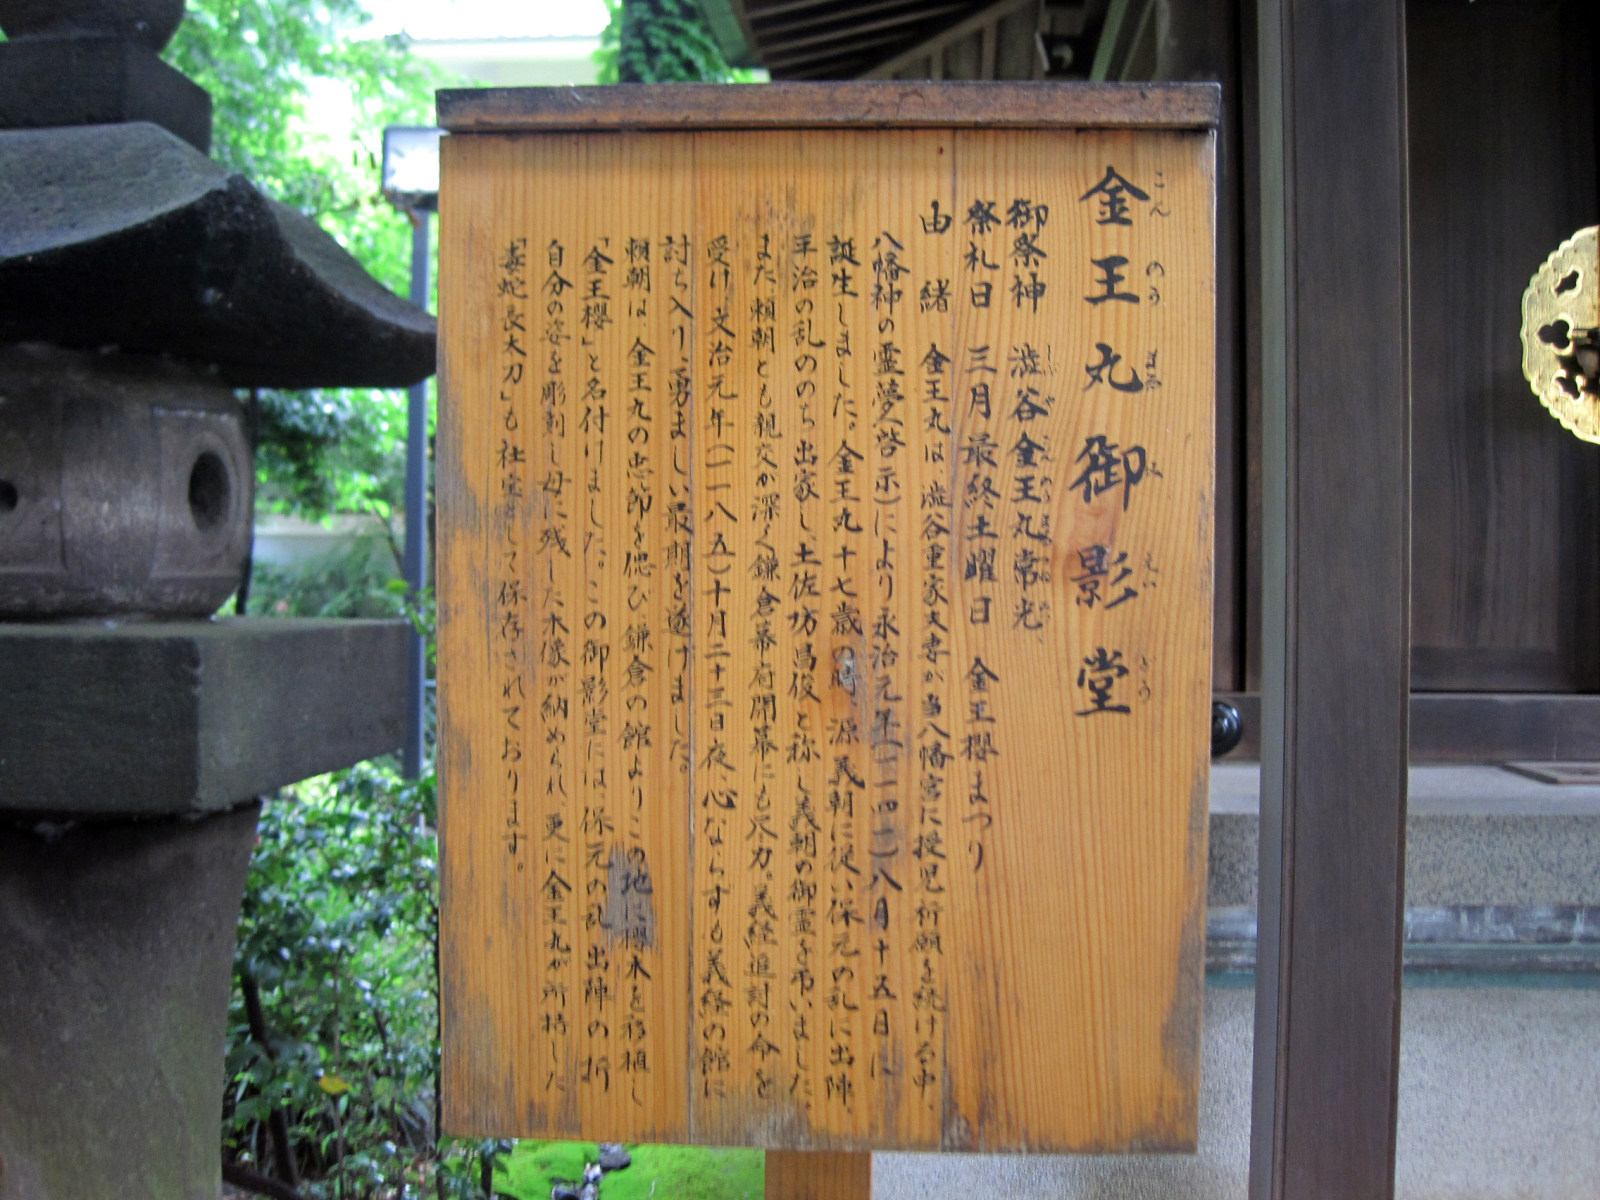 金王丸御影堂
こんのうまるみえいどう
御祭神 渋谷金王丸常光、
しぶやこんのうまるつねみつ
祭礼日 三月最終土曜日 金王櫻まつり
由緒 金王丸は、渋谷重家夫妻が当八幡宮に授児祈願を続ける中、
八幡神の霊夢(啓示)により永治元年(一一四一)八月十五日に
誕生しました。金王丸十七歳の時 源義朝に従い保元の乱に出陣、
平治の乱ののち出家し、土佐坊昌俊と称し義朝の御霊を弔いました。
また頼朝とも親交が深く鎌倉幕府開幕にも尽力。義経追討の命を
受け文治元年(一一八五)十月二十三日夜、心ならずも義経の館に
討ち入り、勇ましい最期を遂げました。
頼朝は、金王丸の忠節を偲び、鎌倉の館よりこの地に櫻木を移植し
「金王櫻」と名付けました。この御影堂には、保元の乱出陣の折
自分の姿を彫刻し母に残した木像が納められ、更に金王丸が所持した
「毒蛇長太刀」も社宝として保存されております。